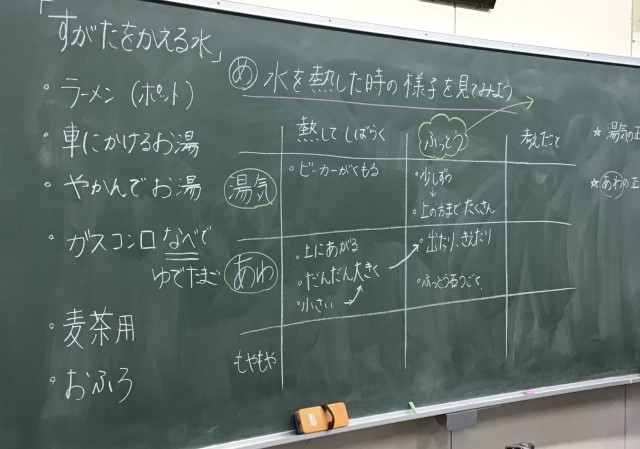 「すがたをかえる水」
・ラーメン(ポット)
・車にかけるお湯
・やかんでお湯
・ガスコンロ なべで
ゆでたまご
・麦茶用
・おふろ
め 水を熱した時の様子を見てみよう
熱してしばらく ふっとう 考えたこと
湯気
・ビーカーがくもる
・少しずつ
↓
・上の方までたくさん
あわ
・上にあがる
・だんだん大きく
・小さい
・出たり、きえたり
・ふっとう石うごく
もやもや
★ 湯気の正
★ あわの正